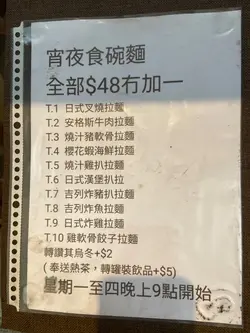 宵夜食碗麵
全部$48冇加一
T.1 日式叉燒拉麵
T.2 安格斯牛肉拉麵
T.3 燒汁豬軟骨拉麵
T.4 櫻花蝦海鮮拉麵
T.5 燒汁雞扒拉麵
T.6 日式漢堡扒拉
T.7 吉列炸豬扒拉麵
T.8 吉列炸魚拉麵
T.9 日式炸雞拉麵
T.10 雞軟骨餃子拉麵
轉讚其烏冬+$2
(奉送熱茶，轉罐裝飲品+$5)
星期一至四晚上9點開始